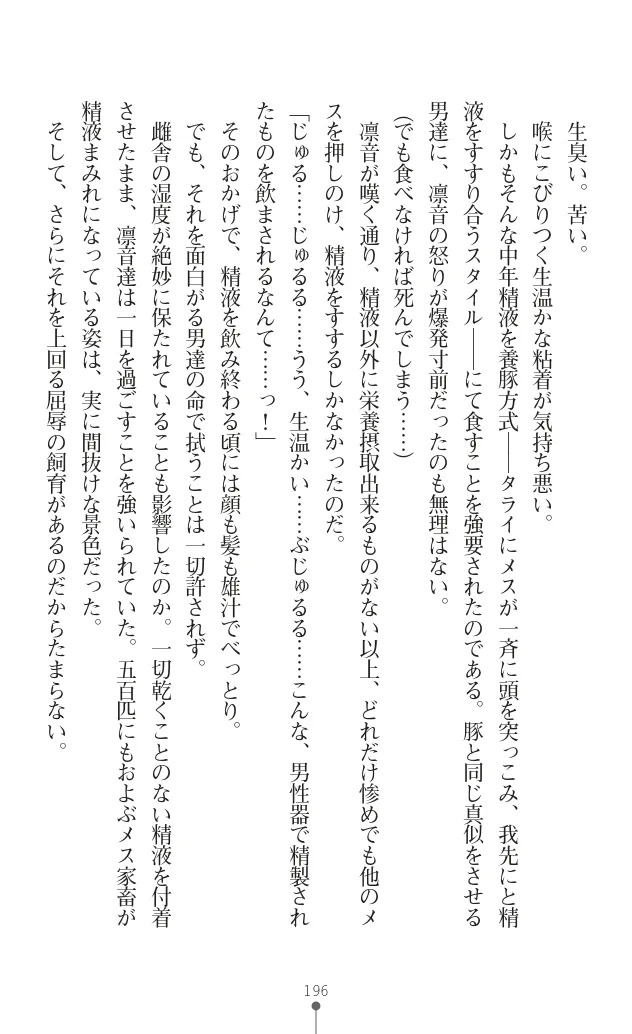 生臭い。苦い。
喉にこびりつく生温かな粘着が気持ち悪い。
しかもそんな中年精液を養豚方式――タライにメスが一斉に頭を突っこみ、我先にと精
液をすすり合うスタイル――にて食すことを強要されたのである。豚と同じ真似をさせる
男達に、凛音の怒りが爆発寸前だったのも無理はない。
(でも食べなければ死んでしまう……)
凛音が嘆く通り、精液以外に栄養摂取出来るものがない以上、どれだけ惨めでも他のメ
スを押しのけ、精液をすするしかなかったのだ。
「じゅる……じゅるる……うう、生温かい……ぶじゅるる……こんな、男性器で精製され
たものを飲まされるなんて……っ！」
そのおかげで、精液を飲み終わる頃には顔も髪も雄汁でべっとり。
でも、それを面白がる男達の命で拭うことは一切許されず。
雌舎の湿度が絶妙に保たれていることも影響したのか。一切乾くことのない精液を付着
させたまま、凛音達は一日を過ごすことを強いられていた。五百匹にもおよぶメス家畜が
精液まみれになっている姿は、実に間抜けな景色だった。
そして、さらにそれを上回る屈辱の飼育があるのだからたまらない。
196